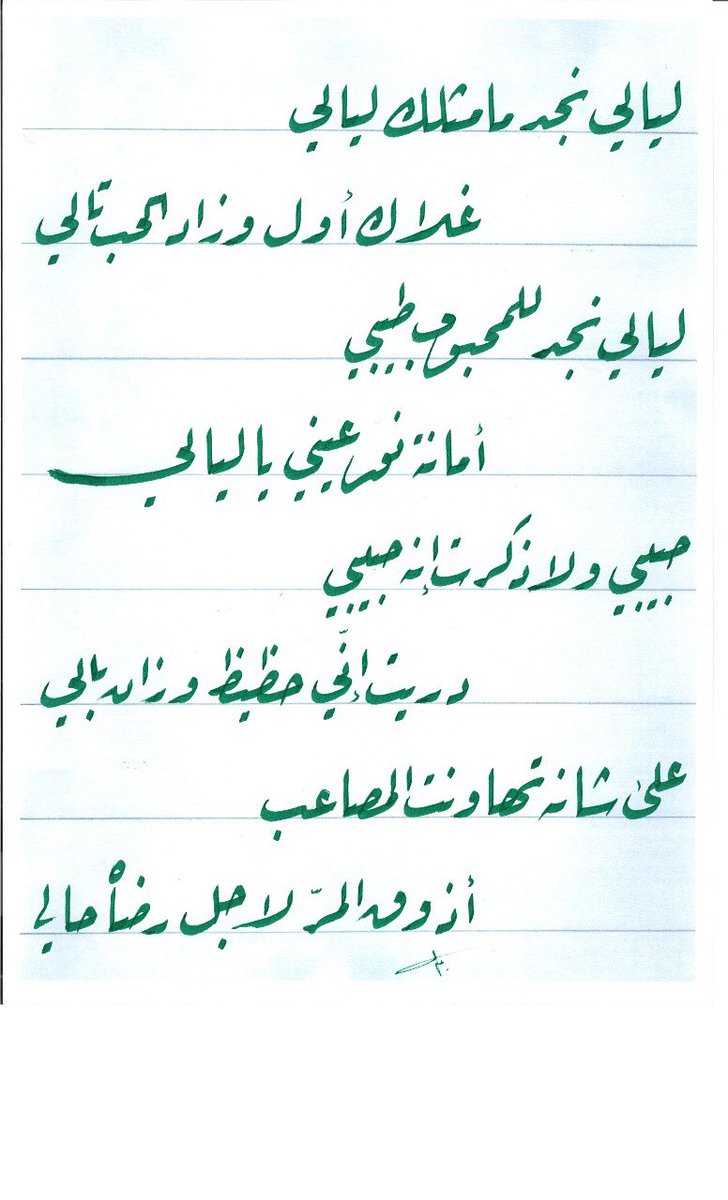 ليالي نجد مامثلك ليالي
غلاك أول وزاد الحب تالي
ليالي نجد للمحبوب طيبي
أمانة نور عيني يا ليالي
حبيبي ولا ذكرت إنه حبيبي
دريت إنّي حظيظ وزان بالي
على شانه تهاونت المصاعب
أذوق المرّ لاجل رضاه حالي